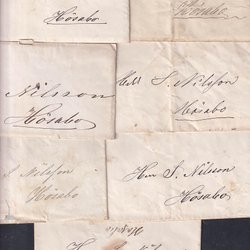 Hösabo
Hösabo
Nilsson
Hösabo
S. Nilsson
Hösabo
S Nilsson
Hösabo
Herr S. Nilsson
Hösabo